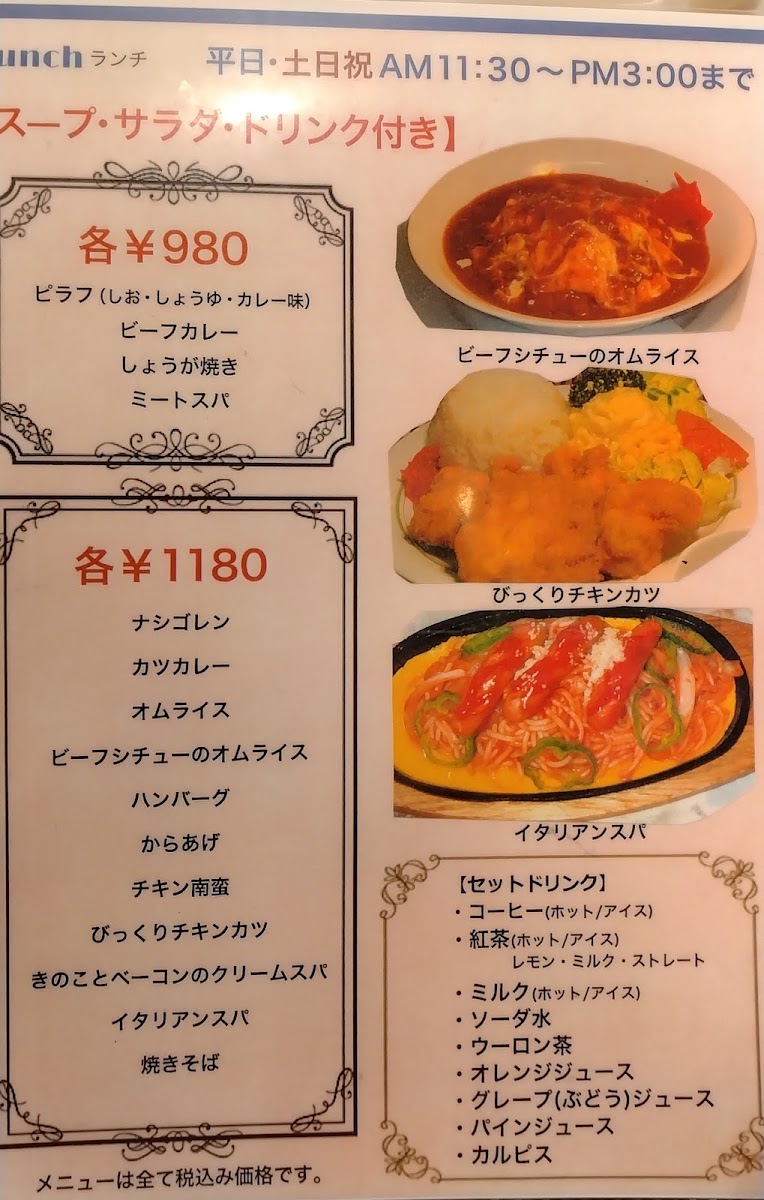 unch ランチ 平日・土日祝 AM11:30～PM3:00まで
スープ・サラダ・ドリンク付き】
各￥980
ピラフ（しお・しょうゆ・カレー味）
ビーフカレー
しょうが焼き
ミートスパ
各￥1180
ナシゴレン
カツカレー
オムライス
ビーフシチューのオムライス
ハンバーグ
からあげ
チキン南蛮
びっくりチキンカツ
きのことベーコンのクリームスパ
イタリアンスパ
焼きそば
メニューは全て税込み価格です。
ビーフシチューのオムライス
びっくりチキンカツ
イタリアンスパ
【セットドリンク】
・コーヒー(ホット/アイス)
・紅茶(ホット/アイス)
レモン・ミルク・ストレート
・ミルク(ホット/アイス)
・ソーダ水
・ウーロン茶
・オレンジジュース
・グレープ(ぶどう)ジュース
・パインジュース
・カルピス